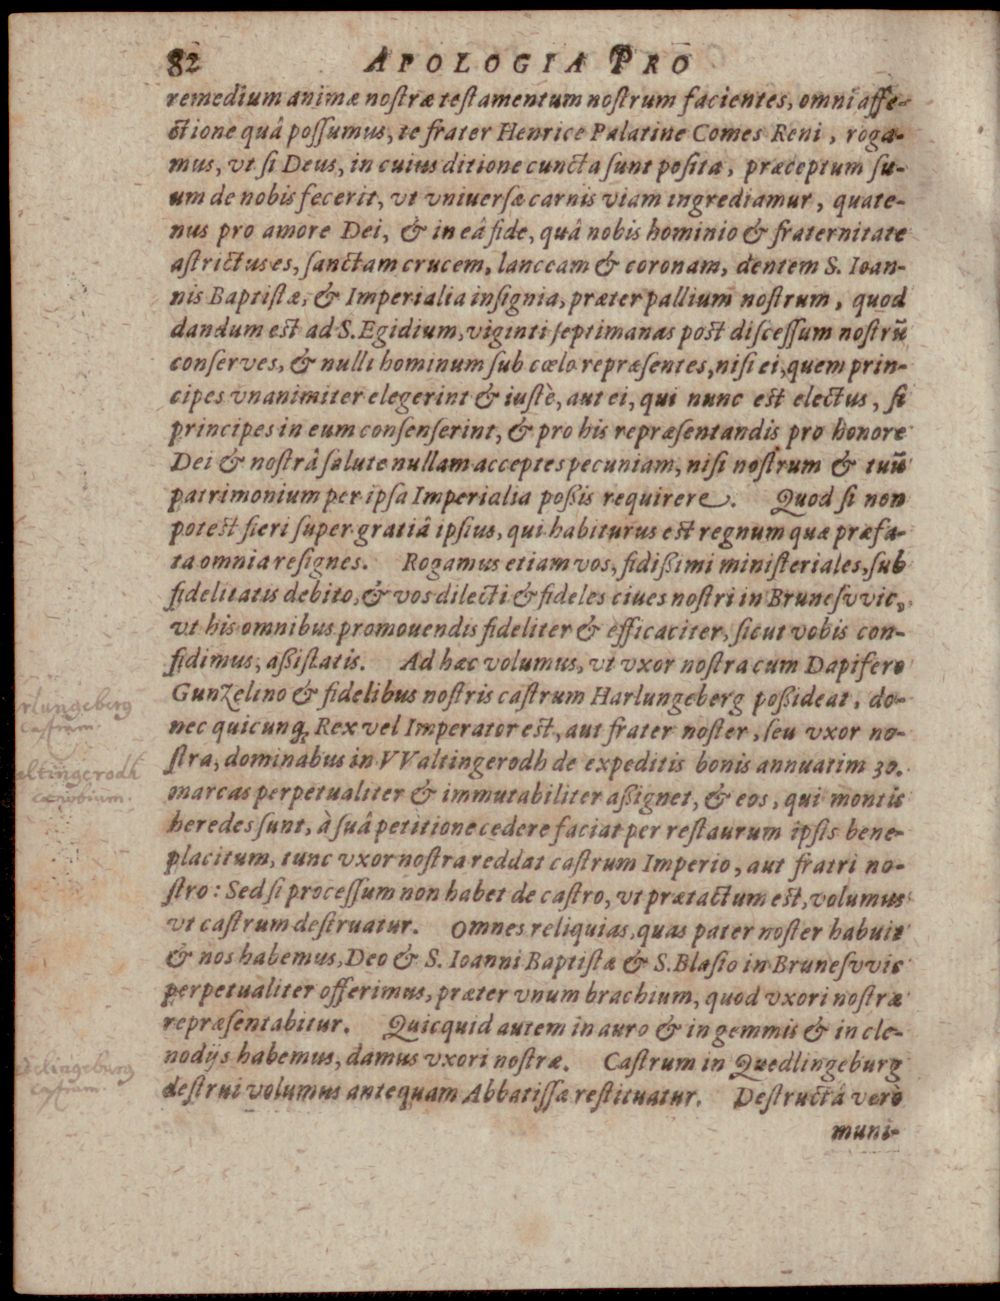 82 APOLOGIA PRO
remedium animæ noſtræ teſtamentum noſtrum facientes, omni affe-
ctione quâ poſſumus, te frater Henrice Palatine Comes Reni, roga-
mus, vt ſi Deus, in cuius ditione cuncta ſunt poſita, præceptum ſu-
um de nobis fecerit, vt vniuerſæ carnis viam ingrediamur, quate-
nus pro amore Dei, & in eâ fide, quâ nobis hominio & fraternitate
aſtrictus es, ſanctam crucem, lanceam & coronam, dentem S. Ioan-
nis Baptiſtæ, & Imperialia inſignia, præter pallium noſtrum, quod
dandum est ad S. Egidium, viginti ſeptimanas post diſceſſum noſtrũ
conſerves, & nulli hominum ſub cœlo repræſentes, niſi ei, quem prin-
cipes vnanimiter elegerint & iuſtè, aut ei, qui nunc est electus, ſi
principes in eum conſenſerint, & pro his repræſentandis pro honore
Dei & noſtrâ ſalute nullam acceptes pecuniam, niſi noſtrum & tuũ
patrimonium per ipſa Imperialia poßis requirere. Quod ſi non
potest fieri ſuper gratiâ ipſius, qui habiturus est regnum quæ præfa-
ta omnia reſignes. Rogamus etiam vos, fidißimi miniſteriales, ſub
fidelitatis debito, & vos dilecti & fideles ciues noſtri in Bruneſvvic,
vt his omnibus promouendis fideliter & efficaciter, ſicut vobis con-
fidimus, aßiſtatis. Ad hæc volumus, vt vxor noſtra cum Dapifero
GunZelino & fidelibus noſtris caſtrum Harlungeberg poßideat, do-
nec quicunq́ Rex vel Imperator est, aut frater noſter, ſeu vxor no-
ſtra, dominabus in VValtingerodh de expeditis bonis annuatim 30.
marcas perpetualiter & immutabiliter aßignet, & eos, qui montis
heredes ſunt, à ſuâ petitione cedere faciat per reſtaurum ipſis bene-
placitum, tunc vxor noſtra reddat caſtrum Imperio, aut fratri no-
ſtro: Sed ſi proceſſum non habet de caſtro, vt prætactum est, volumus
vt caſtrum deſtruatur. Omnes reliquias, quas pater noſter habuit
& nos habemus, Deo & S. Ioanni Baptiſtæ & S. Blaſio in Bruneſvvic
perpetualiter offerimus, præter vnum brachium, quod vxori noſtræ
repræſentabitur. Quicquid autem in auro & in gemmis & in cle-
nodijs habemus, damus vxori noſtræ. Caſtrum in Quedlingeburg
deſtrui volumus antequam Abbatiſſæ reſtituatur. Deſtructâ verò
muni-
rlungeberg
Castrum
altingerodh
cœnobium.
edlingeburg
castrum.